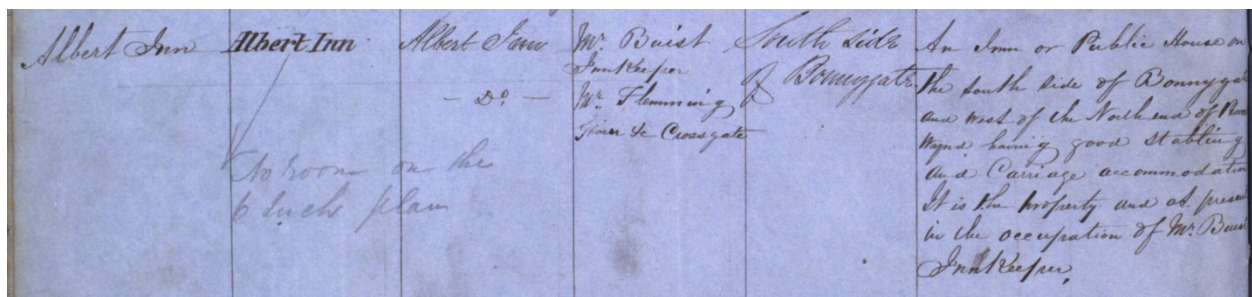 Albert Inn
Albert Inn
No room on the
6 Inch plan
Albert Inn
— Do. —
Mr. Buist
Innkeeper
Mr. Flemming
&c Crossgate
South side
of Bonnygate
An Inn or Public House on
the south side of Bonnygat
and west of the North end of
Wynd having good stabling
and Carriage accommodation
It is the property and at presen
in the occupation of Mr. Buis
Innkeeper.